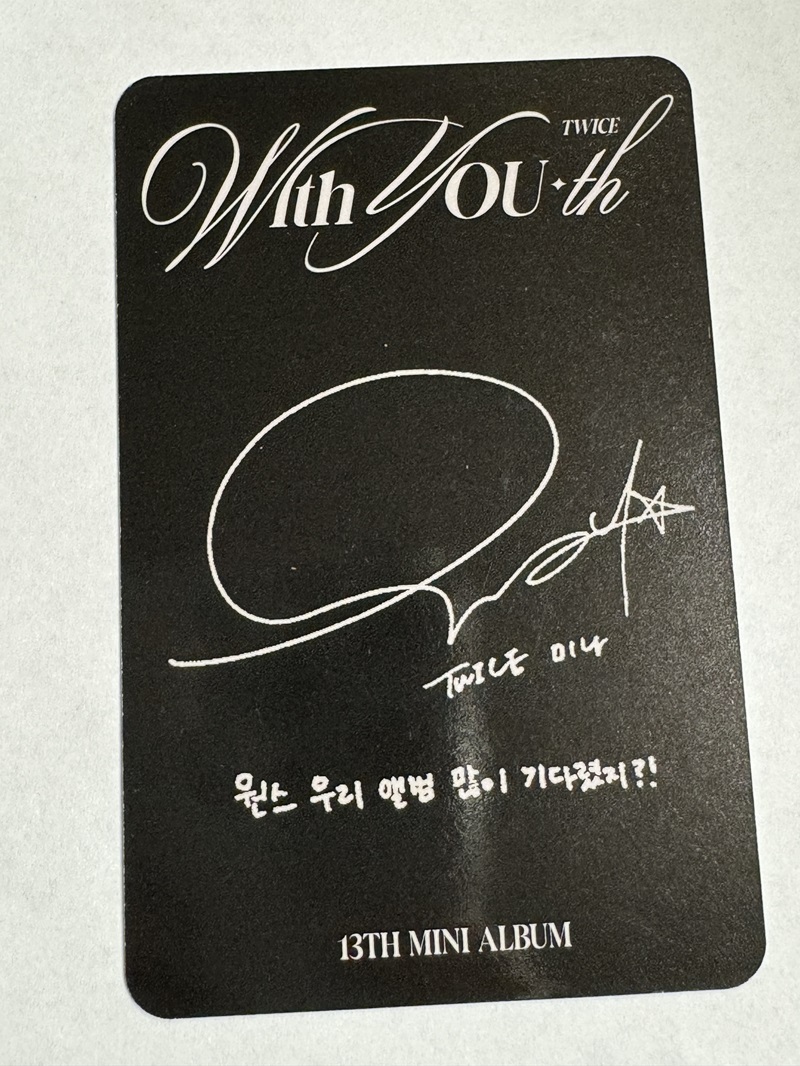 TWICE
With YOU-th
TWICE 미나
원스 우리 앨범 많이 기다렸지?!
13TH MINI ALBUM